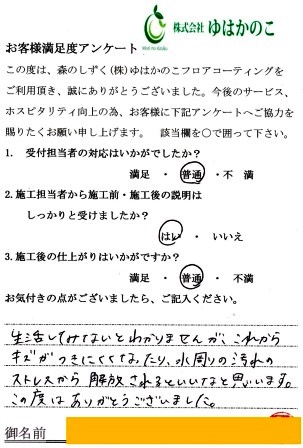 株式会社 ゆはかのこ
お客様満足度アンケート
この度は、森のしずく(株)ゆはかのこフロアコーティングを
ご利用頂き、誠にありがとうございました。今後のサービス、
ホスピタリティ向上の為、お客様に下記アンケートへご協力を
賜りたくお願い申し上げます。 該当欄を○で囲って下さい。
1. 受付担当者の対応はいかがでしたか?
満足 ・ 普通 ・ 不 満
2.施工担当者から施工前・施工後の説明は
しっかりと受けましたか?
はい ・ いいえ
3.施工後の仕上がりはいかがですか?
満足 ・ 普通 ・ 不満
お気付きの点がございましたら、ご記入ください。
生活してみないとわかりませんが、これから
キズがつきにくくなったり、水周りの汚れの
ストレスから解放されるといいなと思います。
この度はありがとうございました。
御名前